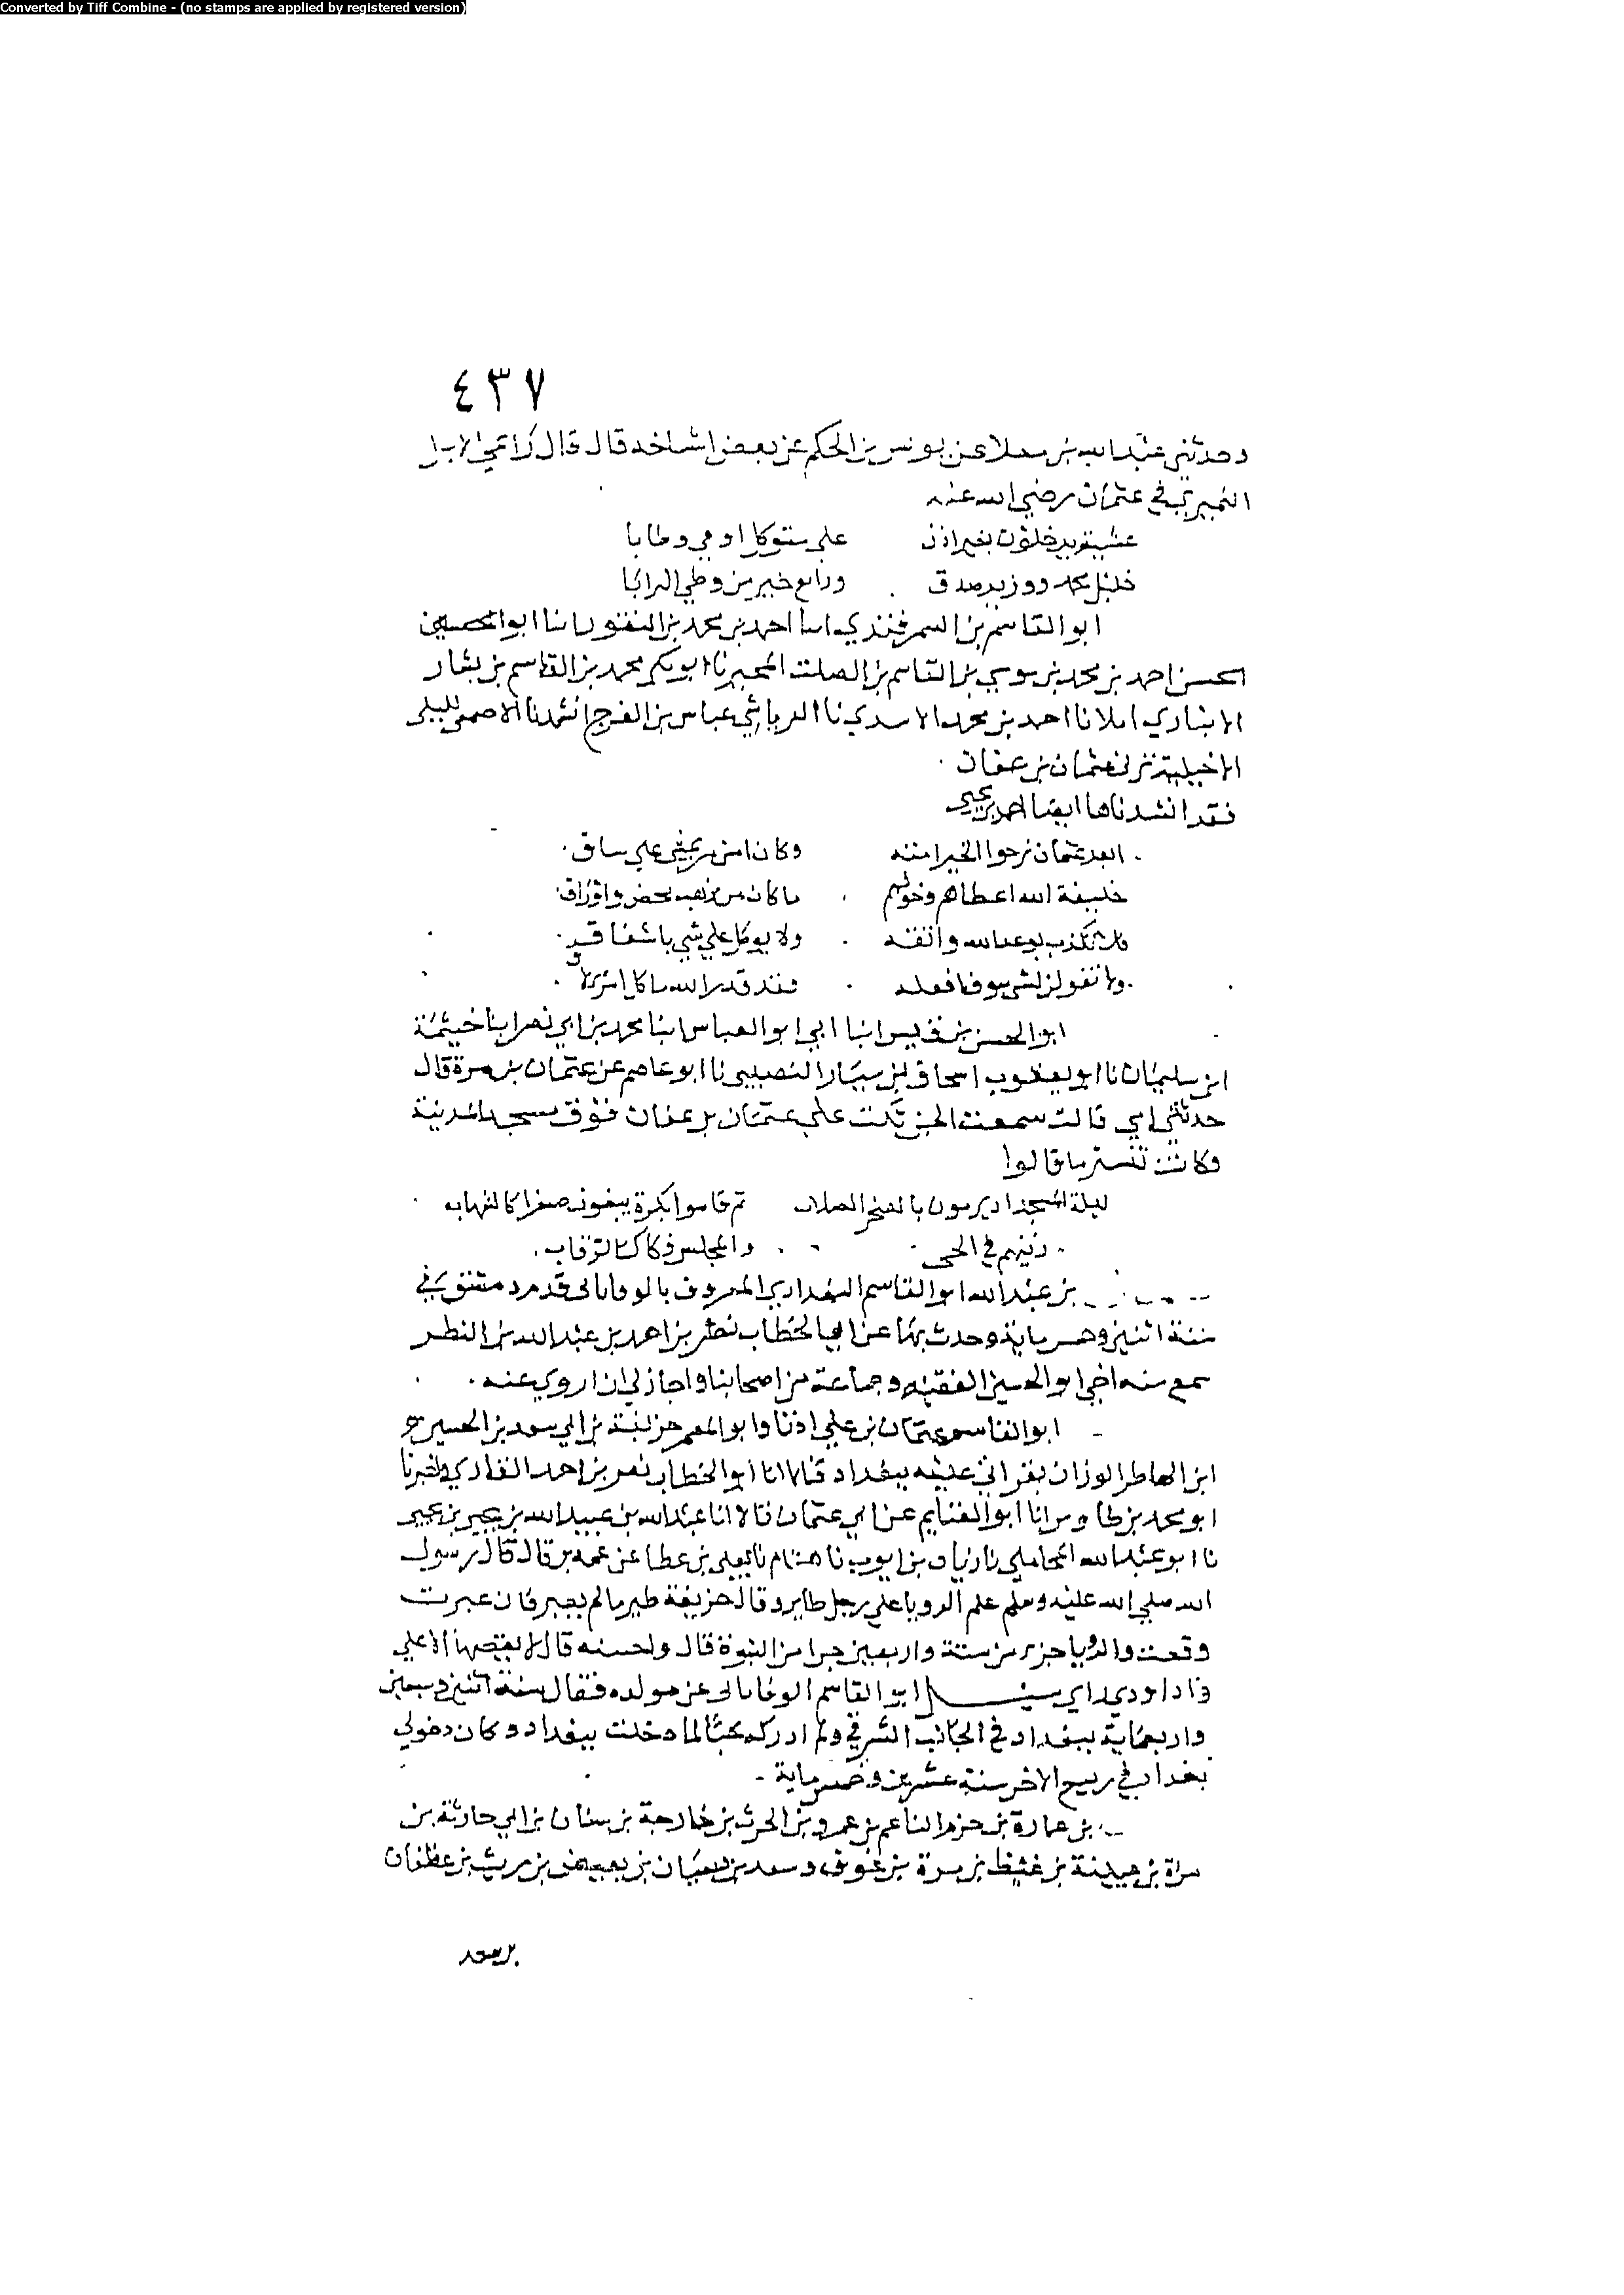 Converted by Tiff Combine - (no stamps are applied by registered version)
٤٣٧
وحدثني عبد الله بن معلا عن يونس بن الحكم عن بعض اشياخه قال قال راعي الابل
النميري في عثمان رضي الله عنه
عشية يدخلون بغير اذن على متوكل اوفى وطابا
خليل محمد ووزير صدق ورابع خير من وطي الترابا
ابو القاسم بن السمرقندي انبا احمد بن محمد بن النقور انبا ابو الحسين
الحسن احمد بن محمد بن موسي بن القاسم بن الصلت المجبر نا ابو بكر محمد بن القاسم بن بشار
الانباري املانا احمد بن محمد الاسدي نا الرياشي عباس بن الفرج انشدنا الاصمعي لليلى
الاخيلية ترثي عثمان بن عفان
فقد انشدناها ايضا احمد بن يحيى
ابعد عثمان نرجوا الخير امته وكان امن من يمشي علي ساق
خليفة الله اعطاهم وخولهم ما كان من ذهب محض واوراق
فلا تكذب بوعد الله واتقه ولا يوكل علي شي باشفاق
ولا تقولن لشي سوف افعله فقد قدر الله ما كل امرئ لاق
ابو الحسن بن قبيس انبا ابي ابو العباس انبا محمد بن ابي نصر انبا خيثمة
ابن سليمان نا ابو يعقوب اسحاق بن سيار النصيبي نا ابو عاصم عن عثمان بن مرة قال
حدثتني امي قالت سمعت الجن بكت علي عثمان بن عفان فوق مسجد المدينة
وكانت تنشر ما قالوا
ليلة المسجد اذ يرمون بالصخر الصلاب ثم قاموا بكرة يبغون صقرا كالشهاب
زينهم في الحي والمجلس فكاك الرقاب
بن عبد الله ابو القاسم البغدادي المعروف بالوقاياتي قدم دمشق في
سنة اثنين وخمس ماية وحدث بها عن ابي الخطاب نصر بن احمد بن عبد الله بن البطر
سمع منه اخي ابو الحسين الفقيه وجماعة من اصحابنا واجاز لي ان اروي عنه
ابو القاسم عثمان بن علي اذنا وابو المعمر خزيفة بن ابي سعد بن الحسين
ابن الهاطر الوزان بقراتي عليه ببغداد قالا انا ابو الخطاب نصر بن احمد القاري واخبرنا
ابو محمد بن طاوس انا ابو الغنايم عن ابي عثمان قالا انا عبد الله بن عبيد الله بن يحيى بن يحيى
نا ابو عبد الله المحاملي نا زياد بن ايوب نا هشام نا يعلى بن عطا عن عمه قال قال رسول
الله صلي الله عليه وسلم علم الرويا علي رجل طاير وقال طير ما لم يعبر فان عبرت
وقعت والرويا جزء من ستة واربعين جزا من النبوة قال واحسبه قال لا يقصها الا علي
ذا داو ذي راي ابو القاسم الوقاياتي عن مولده فقال سنة اثنين وسبعين
واربعماية ببغداد في الجانب الشرقي ولم ادركه حيا لما دخلت بغداد وكان دخولي
بغداد في ربيع الاخر سنة عشرين وخمس ماية
بن عمارة بن خزم الناعم بن عمرو بن الحرث بن خارجة بن سنان بن ابي حارثة بن
مرة بن غيظ بن مرة بن عوف وسعد بن ذبيان بن بغيض بن ريث بن غطفان
بن سعد